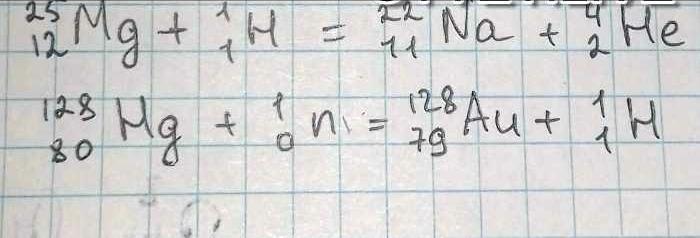 ²⁵₁₂Mg + ¹₁H = ²²₁₁Na + ⁴₂He
¹²⁸₈₀Hg + ¹₀n = ¹²⁸₇₉Au + ¹₁H